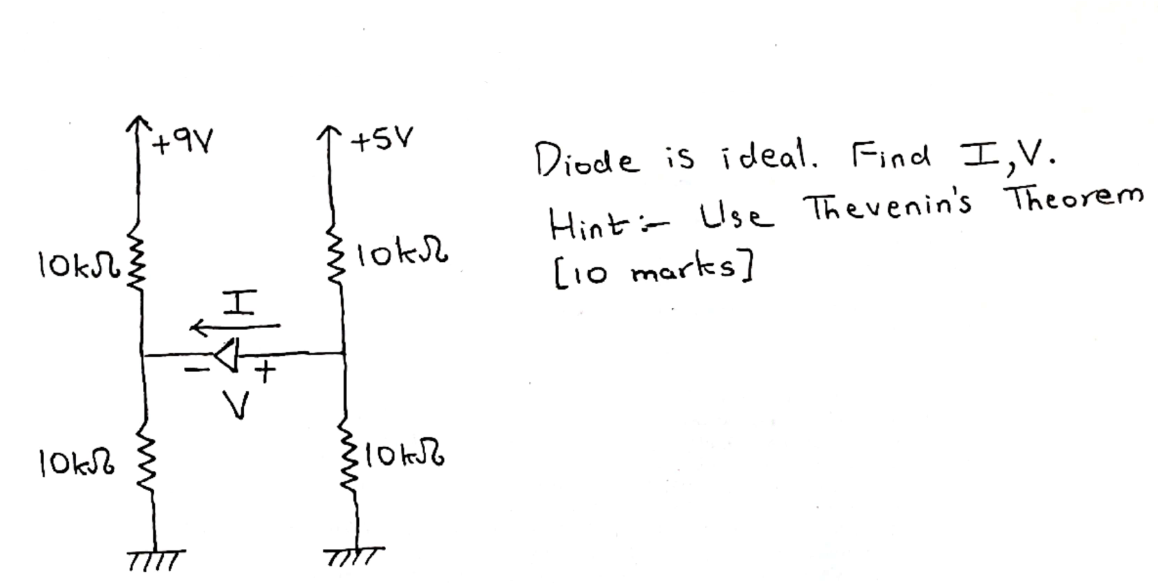 +9V
+5V
Diode is ideal. Find I,V.
Hint:- Use Thevenin's Theorem
[10 marks]
10kΩ
10kΩ
I
- +
V
10kΩ
10kΩ